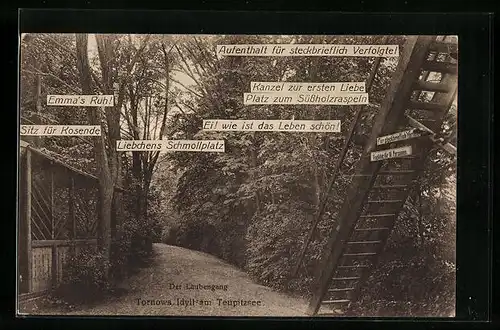 Aufenthalt für steckbrieflich Verfolgte!
Kanzel zur ersten Liebe
Platz zum Süßholzraspeln
Emma's Ruh!
Ei! wie ist das Leben schön!
Sitz für Kosende
Liebchens Schmollplatz
Der Laubengang
Tornows Idyll am Teupitzsee